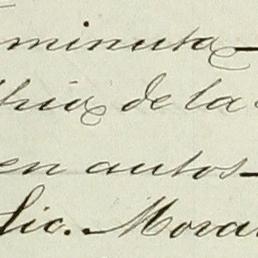 minuta
thia de la
en autos
Lic. Mora